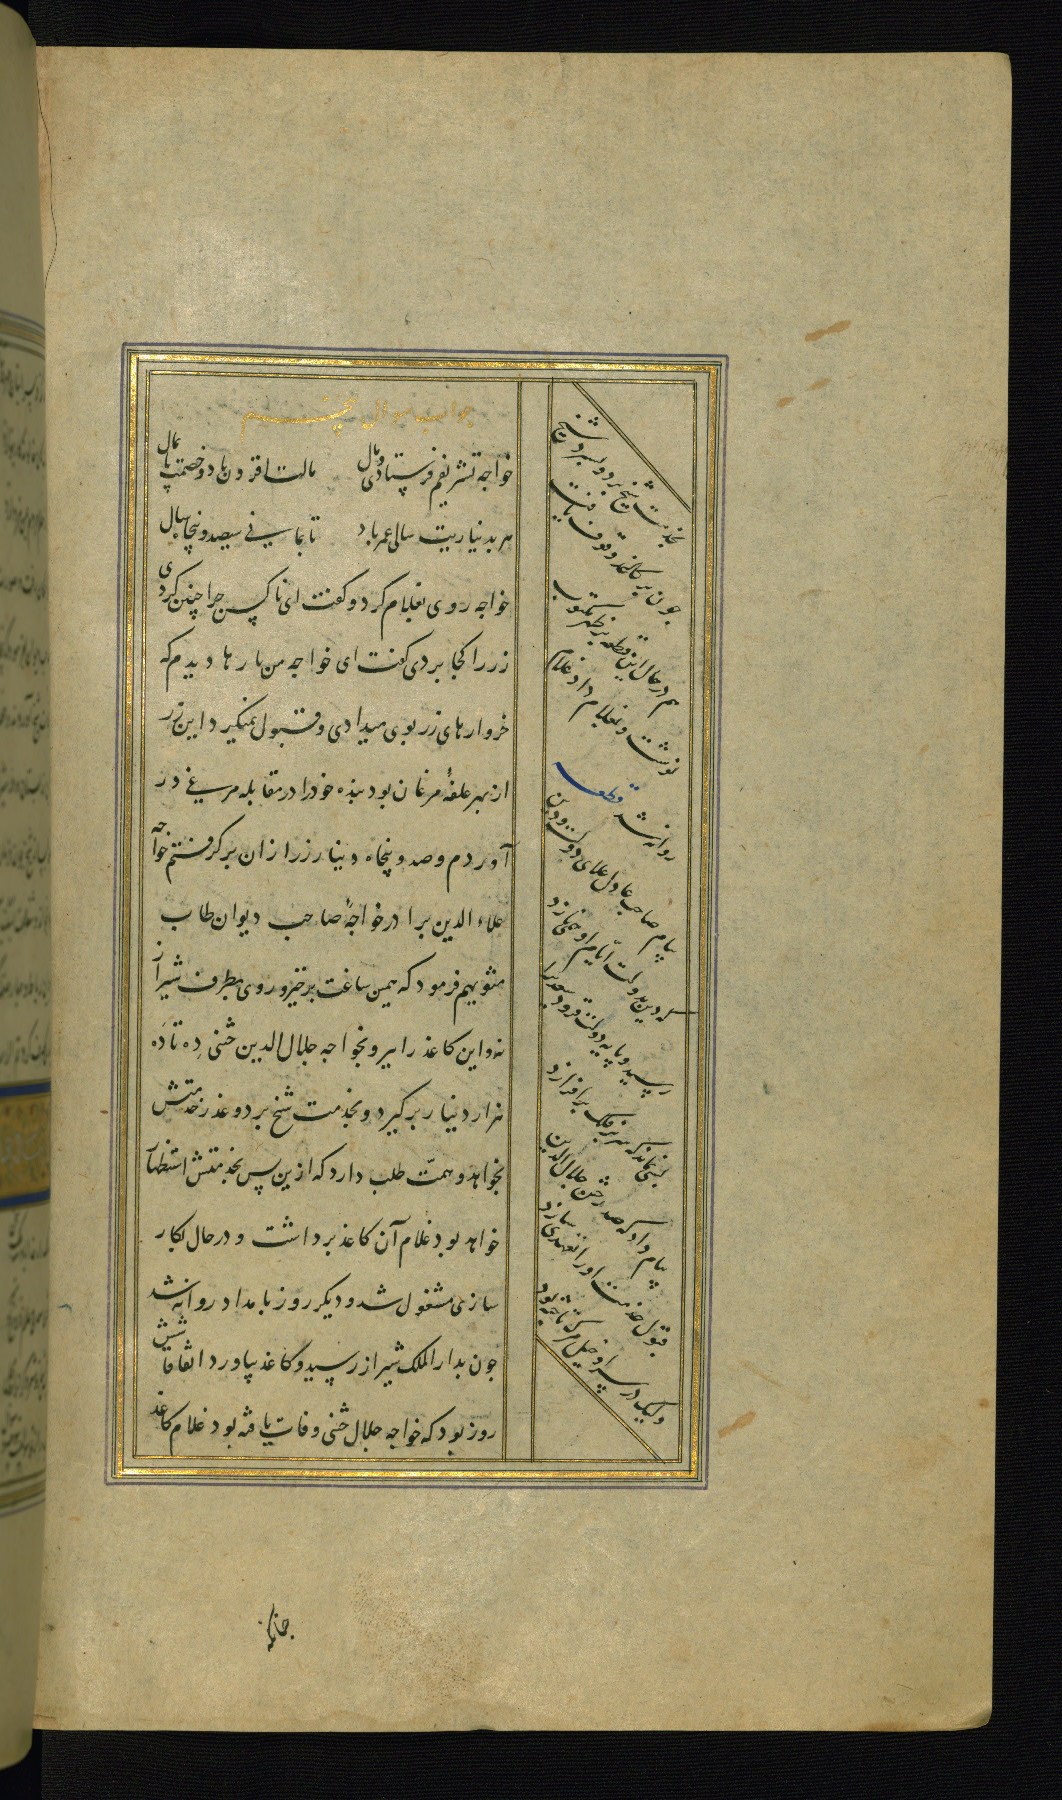 جواب سوال پنجم
خواجه تشریفم فرستادی و مال
مالت افزون باد و خصمت پایمال
هر بدنیاریت سالی عمر باد
تا بمانی سیصد و پنجاه سال
خواجه روی بغلام کرد و گفت ای ناکس چرا چنین کردی
زر را کجا بردی گفت ای خواجه من بارها دیدم که
خروارهای زر بوی میدادی و قبول نمیکرد این زر
از بهر علفهٔ مرغان بود بنده خود را در مقابله مرغی در
آوردم و صد و پنجاه دینار زر ازان برگرفتم خواجه
علاء الدین برادر خواجهٔ صاحب دیوان طاب
مثویهم فرمود که همین ساعت برخیز و روی بطرف شیراز
نه و این کاغذ را ببر و بخواجه جلال الدین ختنی ده تا ده
هزار دینار برگیرد و بخدمت شیخ برد و عذر خدمتش
بخواهد و همت طلب دارد که ازین پس بخدمتش استظهار
خواهد بود غلام آن کاغذ برداشت و در حال بکار
سازی مشغول شد و دیگر روز بامداد روانه شد
چون بدار الملک شیراز رسید و کاغذ بیاورد اتفاقا شش
روز بود که خواجه جلال ختنی وفات یافته بود غلام کاغذ
بخدمت شیخ برد و بسپرد شیخ
چون بر کاغذ وقوف یافت
هم در حال این قطعه بر ظهر مکتوب
نوشت و بغلام داد غلام
روانه شد قطعه
پیام صاحب عادل علای دولت و دین
که دین بدولت ایام او همی نازد
رسید و پایه دولت فزود سعدی را
بسی نماند که سر بر فلک برافرازد
پیام داد که صدر ختن جلال الدین
قبول خدمت او را تعهدی سازد
ولیک بر سر او خیل مرگ تاخته بود
چنانکه